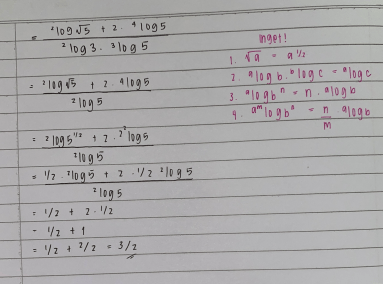 = ²log√5 + 2 . ⁴log5
²log3 . ³log5
= ²log√5 + 2 . ⁴log5
²log5
= ²log5^1/2 + 2 . ²^²log5
²log5
= 1/2 . ²log5 + 2 . 1/2 ²log5
²log5
= 1/2 + 2 . 1/2
= 1/2 + 1
= 1/2 + 2/2 = 3/2
Inget!
1. √a = a^1/2
2. ᵃlog b . ᵇlog c = ᵃlog c
3. ᵃlog bⁿ = n . ᵃlog b
4. a^m log bⁿ = n/m ᵃlog b